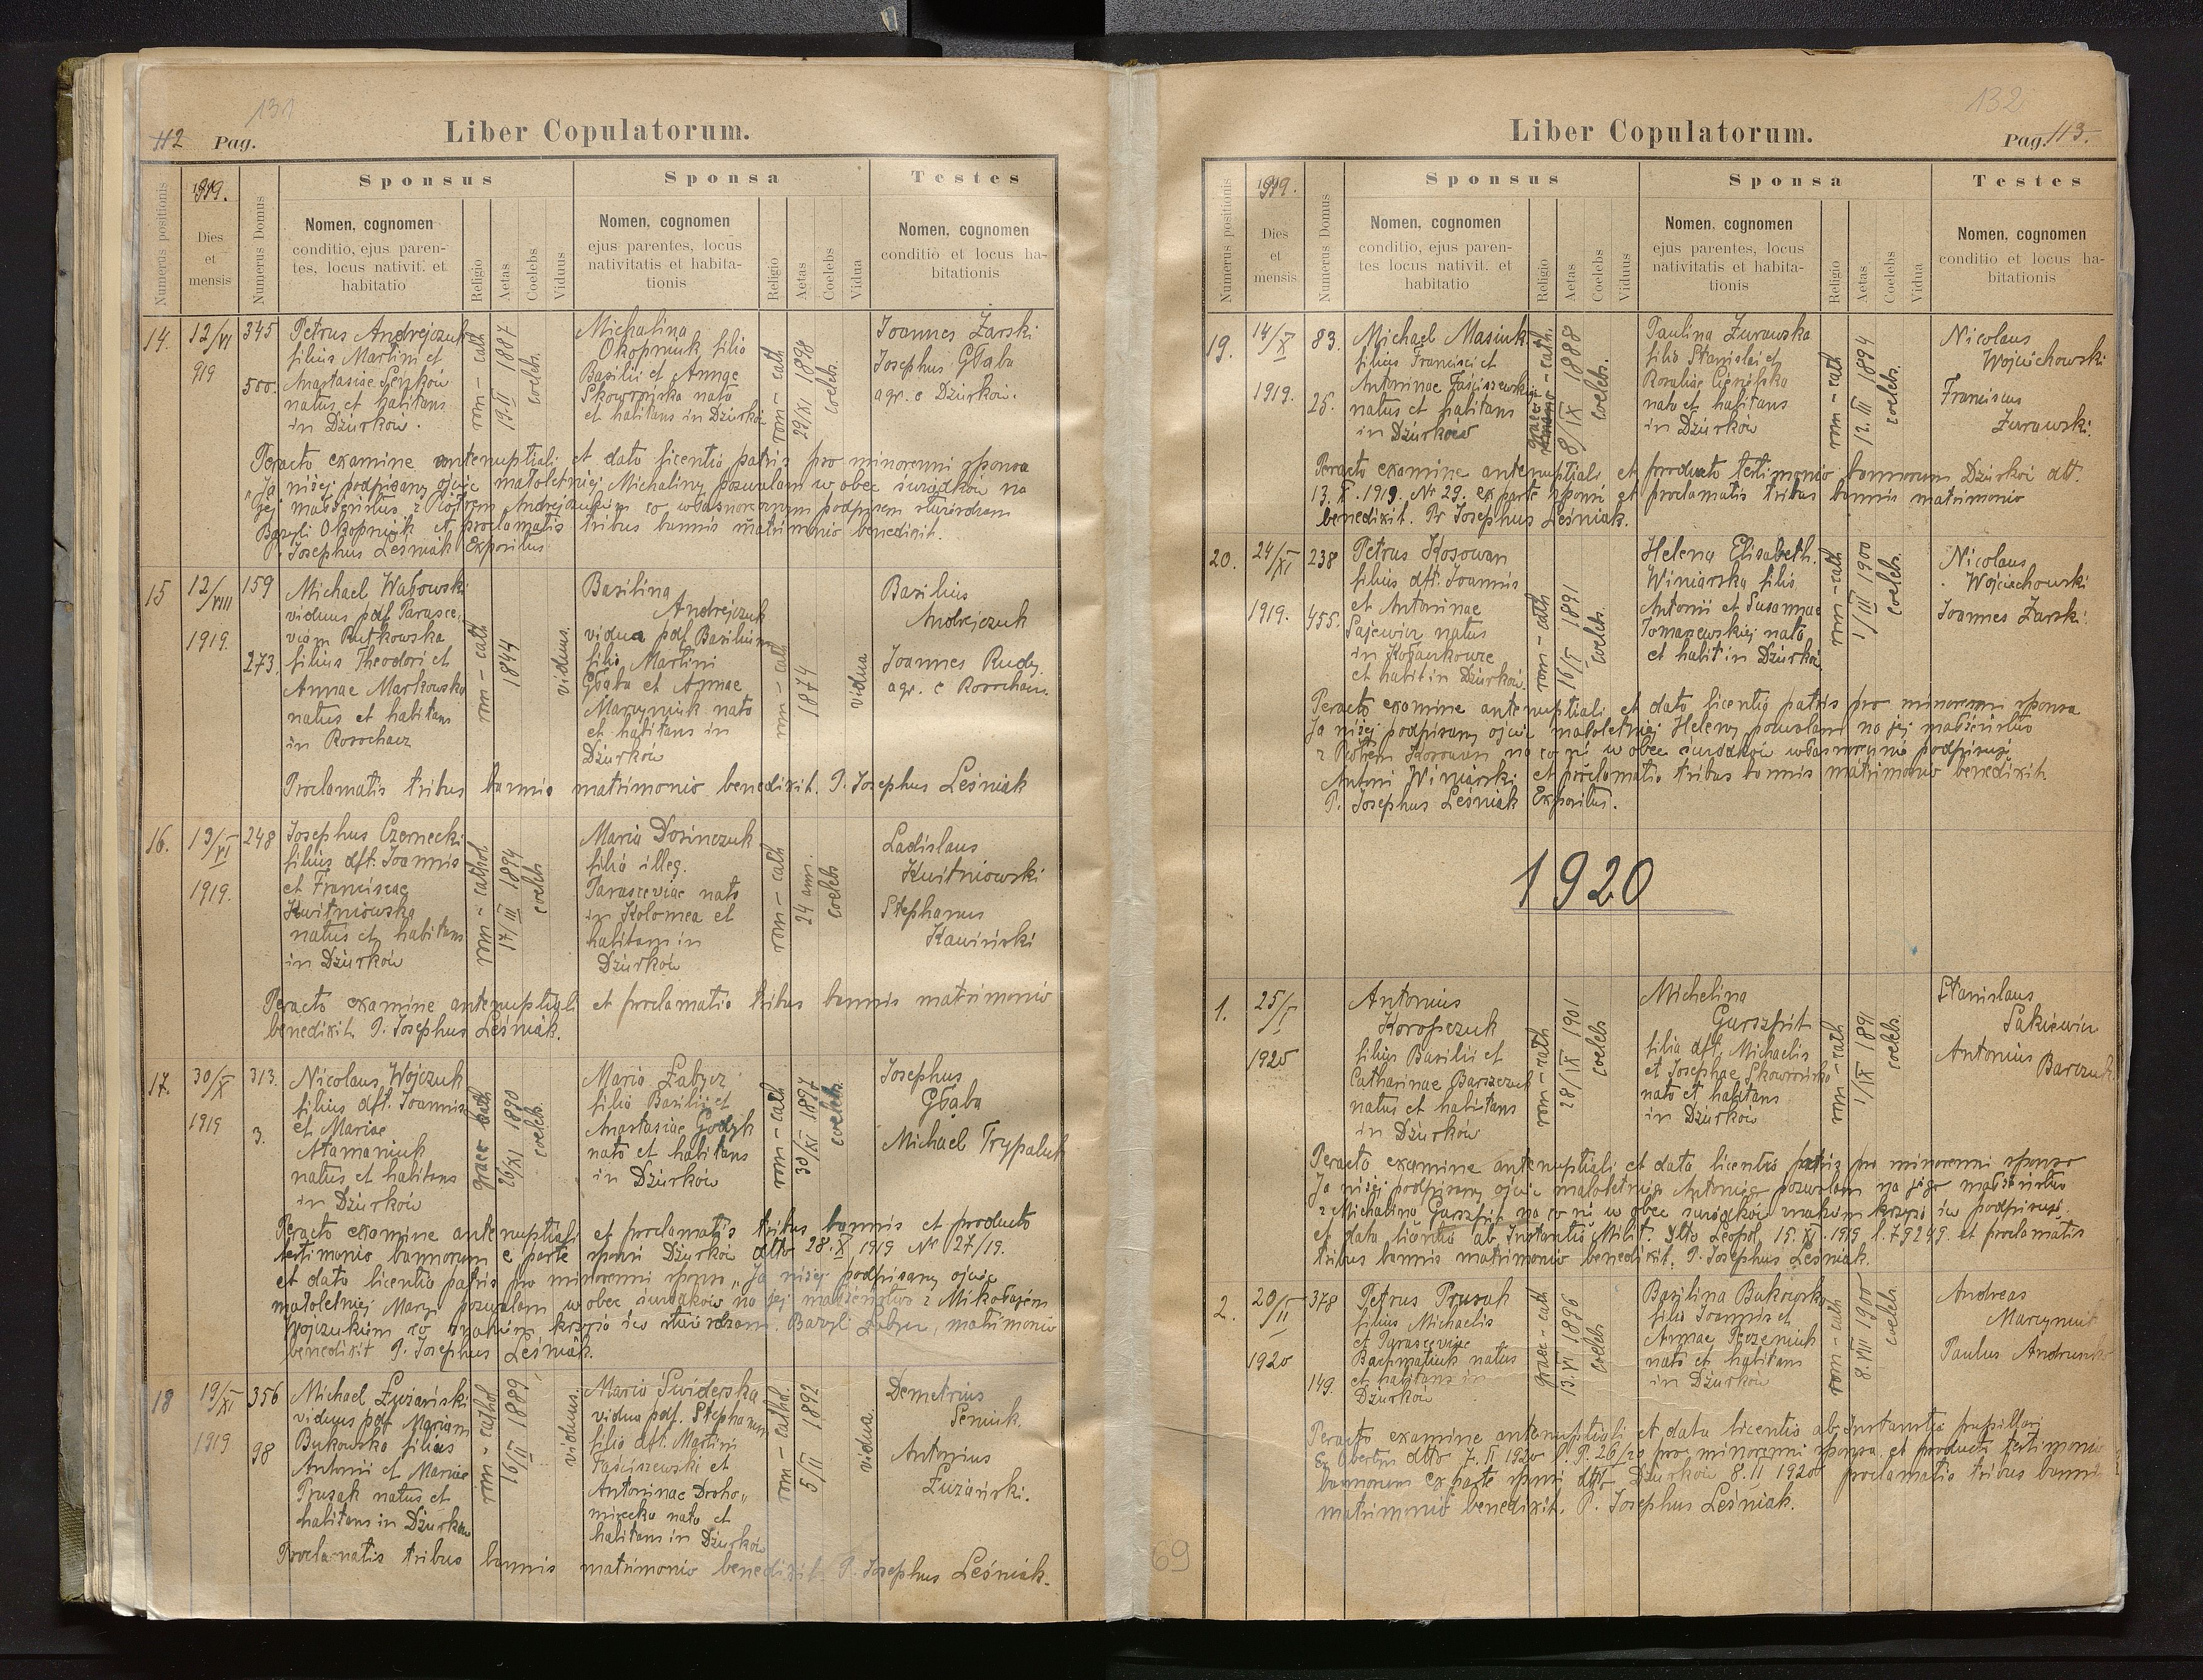 131
112 Pag.
Liber Copulatorum.
Numerus positionis
1919.
Dies
et
mensis
Numerus Domus
Sponsus
Nomen, cognomen
conditio, ejus paren-
tes, locus nativit. et
habitatio
Religio
Aetas
Coelebs
Viduus
Sponsa
Nomen, cognomen
ejus parentes, locus
nativitatis et habita-
tionis
Religio
Aetas
Coelebs
Vidua
Testes
Nomen, cognomen
conditio et locus ha-
bitationis
14.
12/VI
919
345
500.
Petrus Andrejczuk
filius Martini et
Anastasiae Senków
natus et habitans
in Dżurków.
rom-cath
19.II 1887
coelebs.
Michalina
Okopniuk filia
Basilii et Annae
Skowrońska nata
et habitans in Dżurków
rom-cath
29/XI 1898
coelebs.
Joannes Żarski
Josephus Głąba
agr. e Dżurków.
Peracto examine antenuptiali et data licentia patris pro minorenni sponsa
"Ja niżej podpisany ojciec małoletniej Michaliny pozwalam w obec świadków na
jej małżeństwo z Piotrem Andrejczukiem co własnoręcznym podpisem stwierdzam
Bazyli Okopniuk et proclamatis tribus bannis matrimonio benedixit.
P. Josephus Leśniak Expositus
15
12/VIII
1919.
159
273.
Michael Wabowski
viduus pdf. Parasce-
viam Rutkowska
filius Theodori et
Annae Markowska
natus et habitans
in Rosochacz
rom-cath
1844
viduus.
Basilina
Andrejczuk
vidua pdf. Basilium
filia Martini
Głąba et Annae
Marzyniuk nata
et habitans in
Dżurków
rom-cath
1874
vidua
Basilius
Andrejczuk
Joannes Rudy
agr. e Rosochacz.
Proclamatis tribus bannis matrimonio benedixit. P. Josephus Leśniak
16.
13/VI
1919.
248
Josephus Czernecki
filius dft. Joannis
et Franciscae
Kwitniowska
natus et habitans
in Dżurków
rom-cathol
17/III 1894
coelebs
Maria Dosinczuk
filia illeg.
Parasceviae nata
in Kolomea et
habitans in
Dżurków
rom-cath
24 ann.
coelebs
Ladislaus
Kwitniowski
Stephanus
Kawiński
Peracto examine antenuptiali et proclamatis tribus bannis matrimonio
benedixit. P. Josephus Leśniak.
17.
30/X
1919
313.
3.
Nicolaus Wojczuk
filius dft. Joannis
et Mariae
Atamaniuk
natus et habitans
in Dżurków
graec kath
26/XI 1890
coelebs.
Maria Łabycz
filia Basilii et
Anastasiae Godyk
nata et habitans
in Dżurków
rom-cath
30/XI 1897
coelebs.
Josephus
Głąba
Michael Trypaluk
Peracto examine antenuptiali et proclamatis tribus bannis et producto
testimonio bannorum e parte sponsi Dżurków dtto 28.X 1919 Nr 27/19.
et data licentia patris pro minorenni sponsa "Ja niżej podpisany ojciec
małoletniej Maryi pozwalam w obec świadków na jej małżeństwo z Mikołajem
Wojczukiem co znakiem krzyża św. stwierdzam. Bazyli Łabycz, matrimonio
benedixit P. Josephus Leśniak.
18
19/XI
1919
356
98
Michael Łużański
viduus pdf Mariam
Bukowska filius
Antonii et Mariae
Prusak natus et
habitans in Dżurków
rom-cathol
16/II 1889
viduus.
Maria Swiderska
vidua pdf. Stephanum
filia dft. Martini
Taściszewski et
Antoninae Droho-
mirecka nata et
habitans in Dżurków
rom-cathol.
5/II 1892
vidua.
Demetrius
Seniuk.
Antonius
Łużański.
Proclamatis tribus bannis matrimonio benedixit. P. Josephus Leśniak.
132
Liber Copulatorum.
Pag. 113.
Numerus positionis
1919.
Dies
et
mensis
Numerus Domus
Sponsus
Nomen, cognomen
conditio, ejus paren-
tes locus nativit. et
habitatio
Religio
Aetas
Coelebs
Viduus
Sponsa
Nomen, cognomen
ejus parentes, locus
nativitatis et habita-
tionis
Religio
Aetas
Coelebs
Vidua
Testes
Nomen, cognomen
conditio et locus ha-
bitationis
19.
14/X
1919.
83.
25.
Michael Masiuk
filius Francisci et
Antoninae Taściszewskiej
natus et habitans
in Dżurków
graeco-cath.
8/IX 1888
coelebs.
Paulina Żurawska
filia Stanislai et
Rosaliae Cienińska
nata et habitans
in Dżurków
rom-cath
12.III 1894
coelebs.
Nicolaus
Wojciechowski
Franciscus
Żurawski.
Peracto examine antenuptiali et producto testimonio bannorum Dżurków dtt.
13.X.1919. Nr 29. ex parte sponsi et proclamatis tribus bannis matrimonio
benedixit. Pr Josephus Leśniak.
20.
24/XI
1919.
238
455.
Petrus Kosowan
filius dft. Joannis
et Antoninae
Sajewicz natus
in Kołaczkowce
et habit in Dżurków
rom-cath
16/I 1891
coelebs.
Helena Elisabeth.
Winiarska filia
Antonii et Susannae
Tomaszewskiej nata
et habit in Dżurków
rom-cath
1/III 1900
coelebs.
Nicolaus
Wojciechowski
Joannes Żarski.
Peracto examine antenuptiali et data licentia patris pro minorenni sponsa
Ja niżej podpisany ojciec małoletniej Heleny pozwalam na jej małżeństwo
z Piotrem Kosowan na co się w obec świadków własnoręcznie podpisuję
Antoni Winiarski et proclamatis tribus bannis matrimonio benedixit.
P. Josephus Leśniak Expositus.
1920
1.
25/I
1920
Antonius
Koropczuk
filius Basilii et
Catharinae Barszczuk
natus et habitans
in Dżurków
rom-cath
28/IX 1901
coelebs
Michelina
Gurszpit
filia dft. Michaelis
et Josephae Skowrońska
nata et habitans
in Dżurków
rom-cath
1/IX 1891
coelebs.
Stanislaus
Sakiewicz
Antonius
Barczuk
Peracto examine antenuptiali et data licentia patris pro minorenni sponso
Ja niżej podpisany ojciec małoletniego Antoniego pozwalam na jego małżeństwo
z Michaliną Gurszpit na co się w obec świadków znakiem krzyża św podpisuję.
et data licentia ab Instantia Milit. dtto Leopol. 15.XI.1919 l.79249. et proclamatis
tribus bannis matrimonio benedixit. P. Josephus Leśniak.
2.
20/II
1920
378
149.
Petrus Prusak
filius Michaelis
et Parasceviae
Bachmatiuk natus
et habitans in
Dżurków
graec-cath
13.VI 1896
coelebs
Basilina Bukowska
filia Joannis et
Annae Rozeniuk
nata et habitans
in Dżurków
rom-cath
8.VIII 1900
coelebs.
Andreas
Marzyniuk
Paulus
Peracto examine antenuptiali et data licentia ab Instantia pupillari
Ex Obertyn dtto 7.II 1920 l. P. 26/20 pro minorenni sponsa et producti testimonio
bannorum ex parte sponsi dtto Dżurków 8.II 1920 proclamatis tribus bannis
matrimonio benedixit. P. Josephus Leśniak.
69